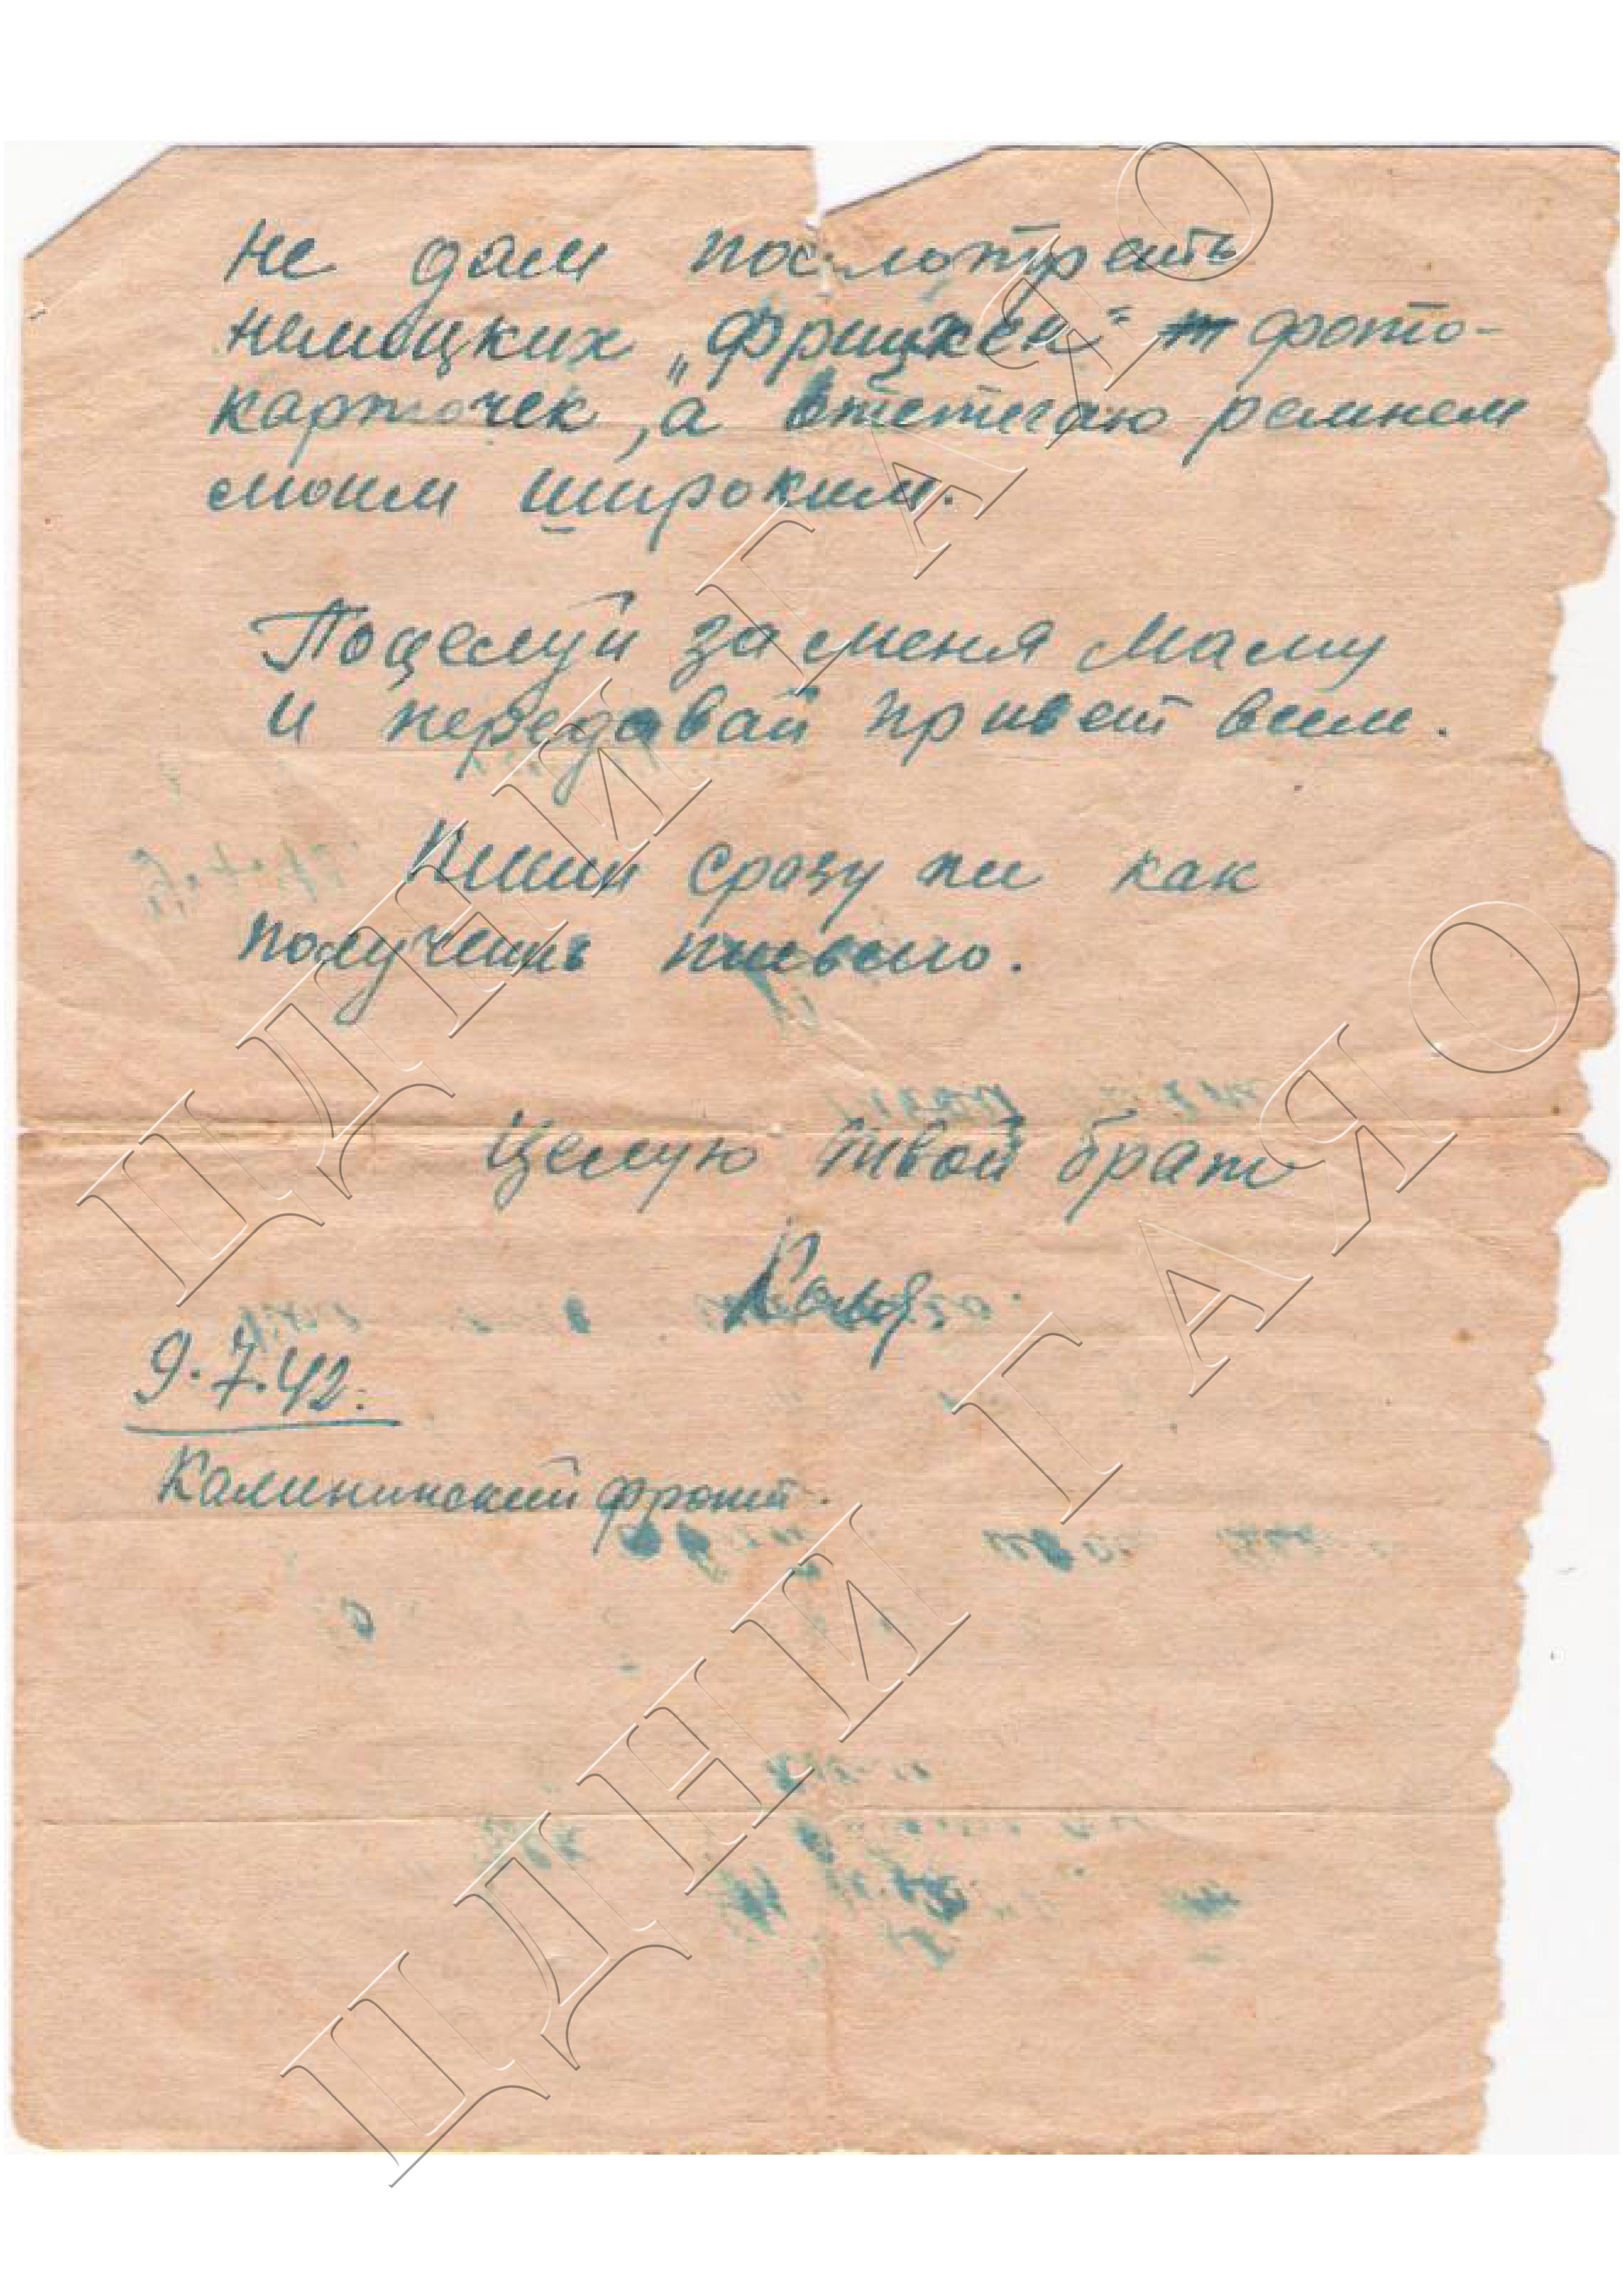 не дам посмотреть
немецких „Фрицхен" фото-
карточек, а ремнем
моим широким.
Поцелуй за меня маму
и передавай привет всем.
Пиши сразу же как
получишь письмо.
Целую твой брат
Коля.
9.7.42.
Калининский фронт.
ЦДНИ ГАЯО
ЦДНИ ГАЯО